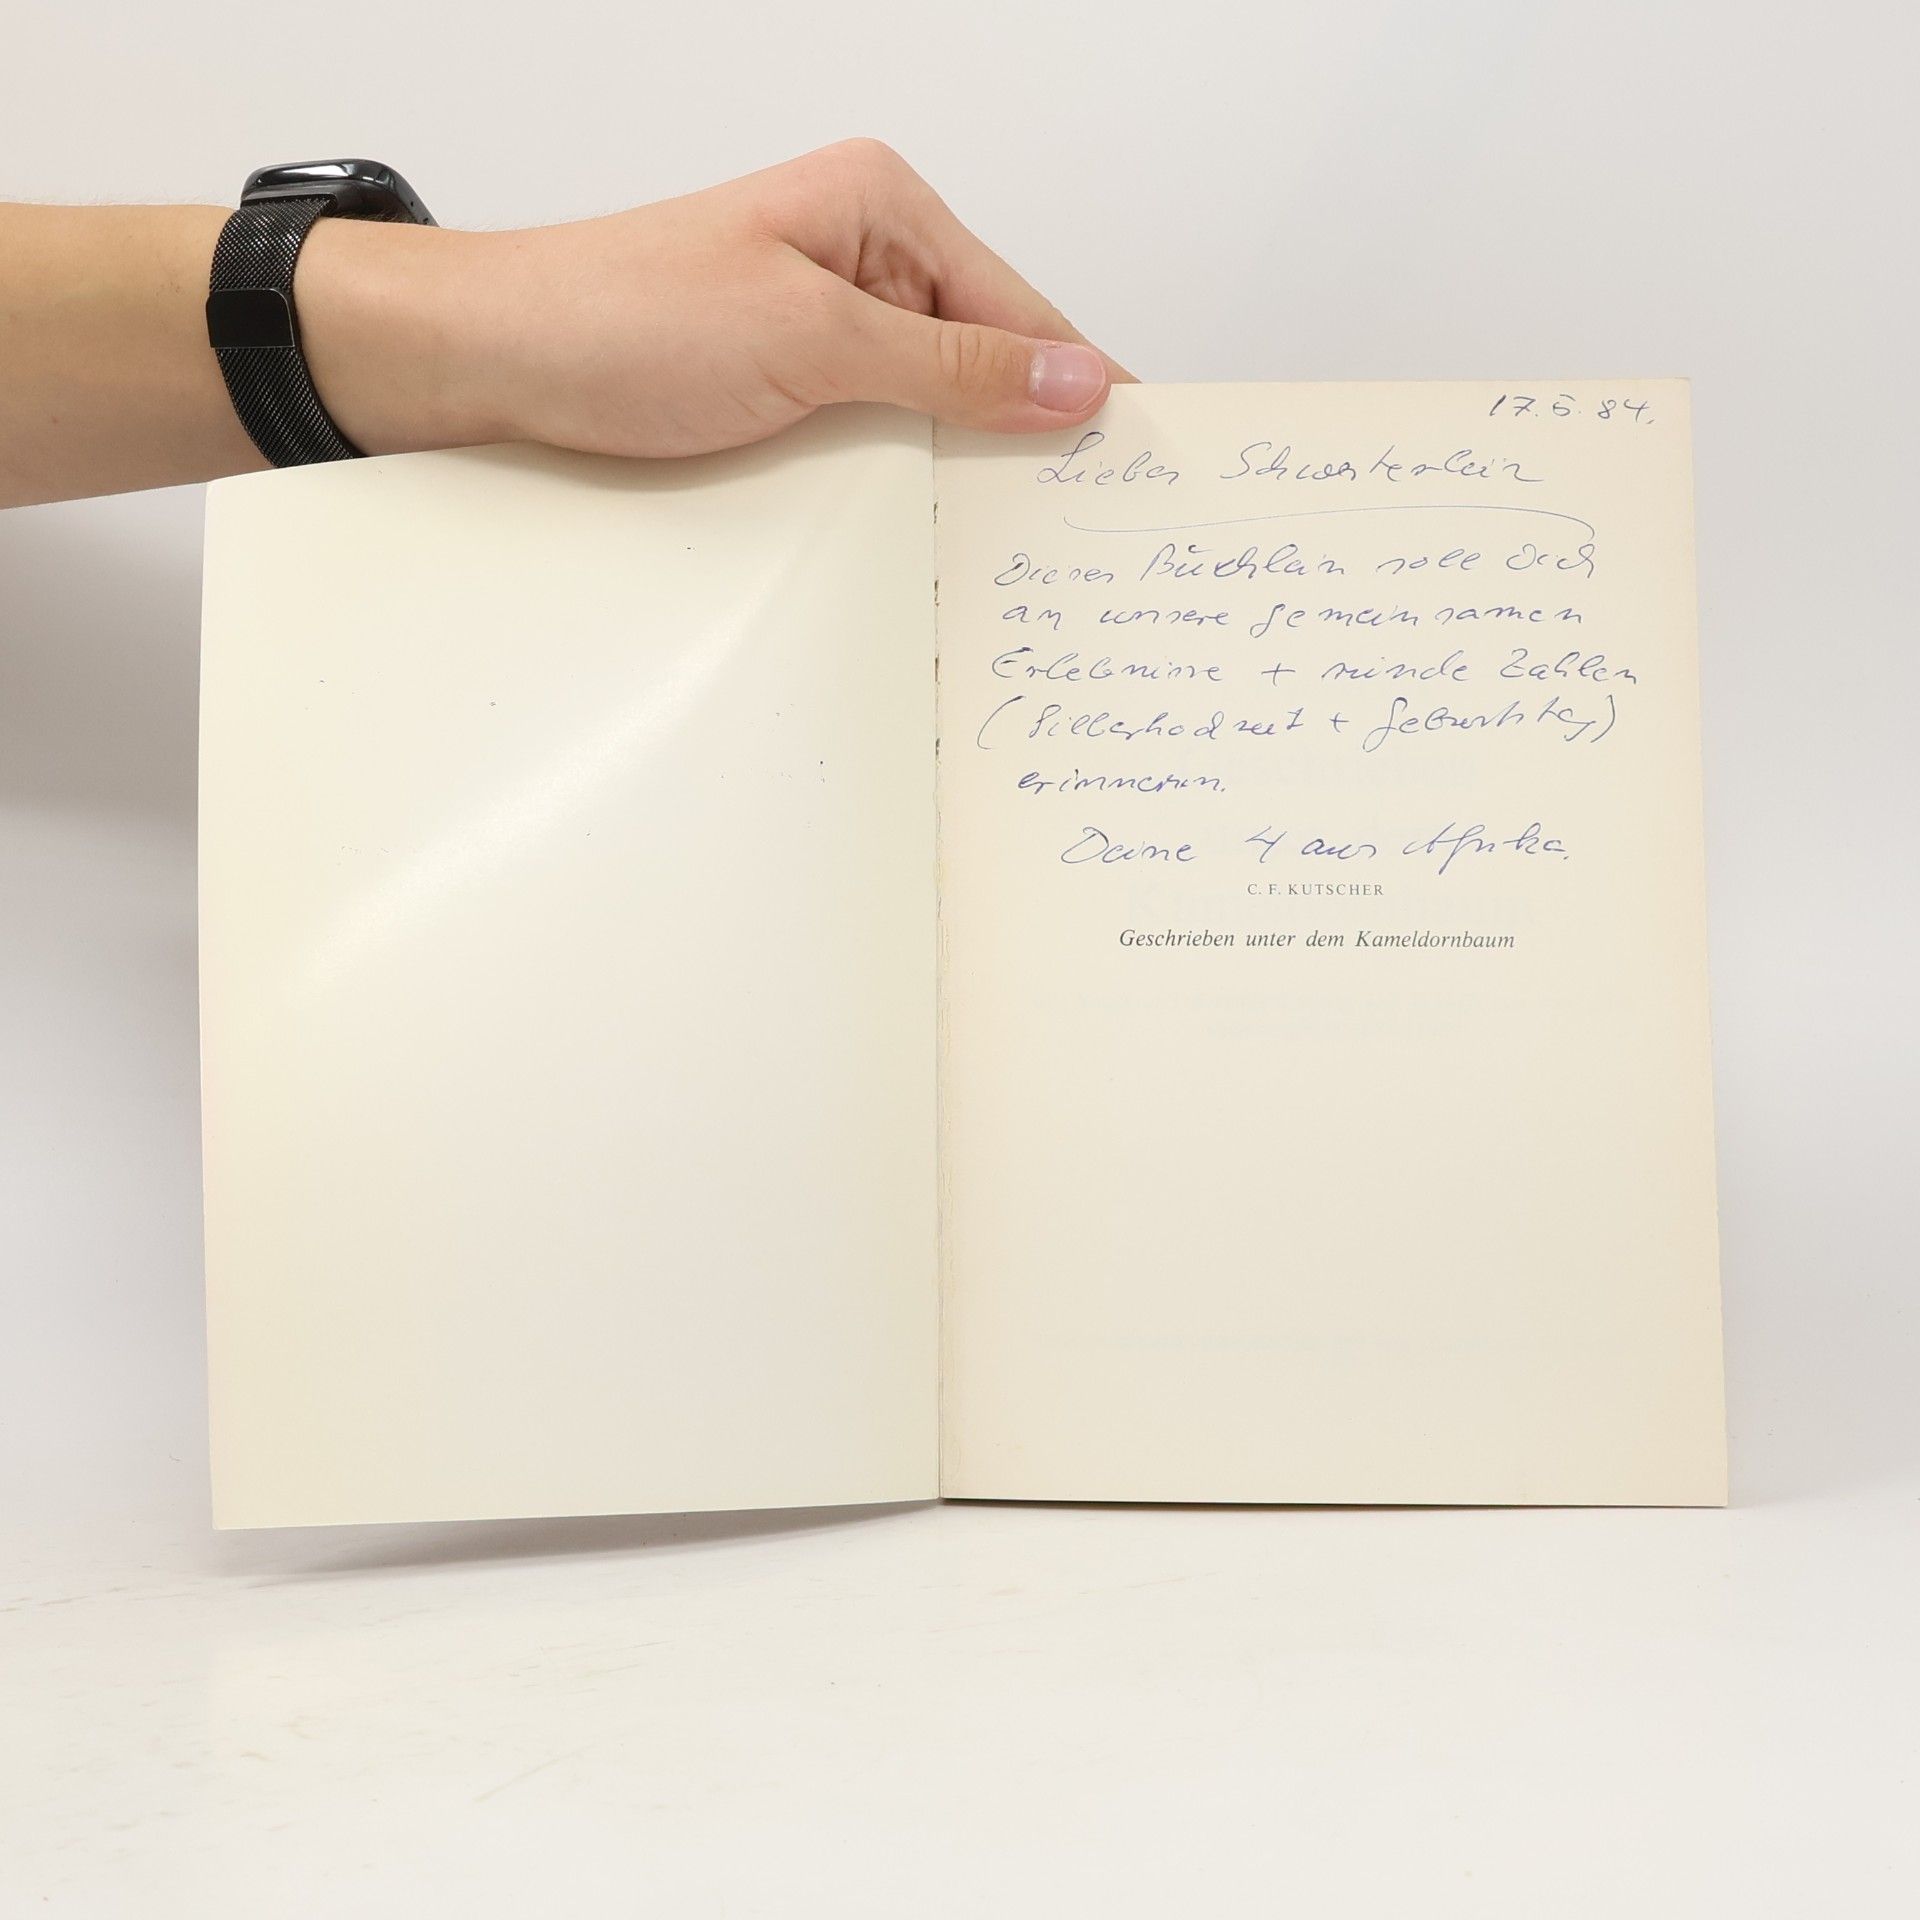 17.5.84.
Liebes Schwesterlein
Dieses Büchlein soll Dich
an unsere gemeinsamen
Erlebnisse + runde Zahlen
(Silberhochzeit + Geburtstag)
erinnern.
Deine 4 aus Afrika.
C. F. KUTSCHER
Geschrieben unter dem Kameldornbaum